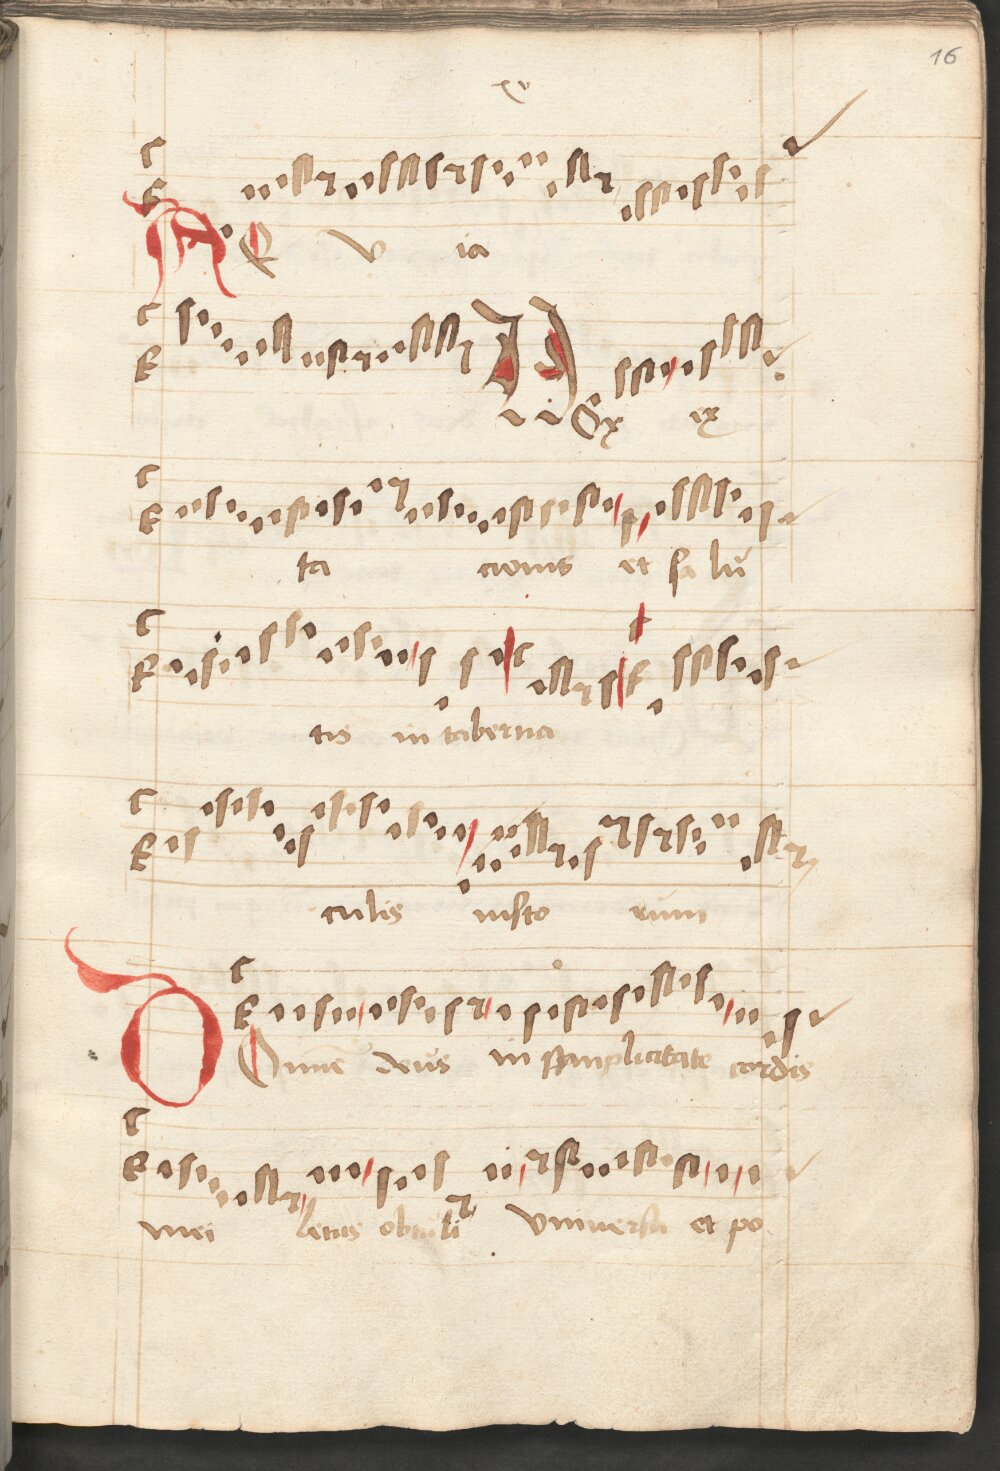 16
xv
AE v ia
V Ox ex
ta cionis et sa lu
tis in taberna
culis iusto rum
Domine deus in simplicitate cordis
mei letus obtuli vniuersa et po